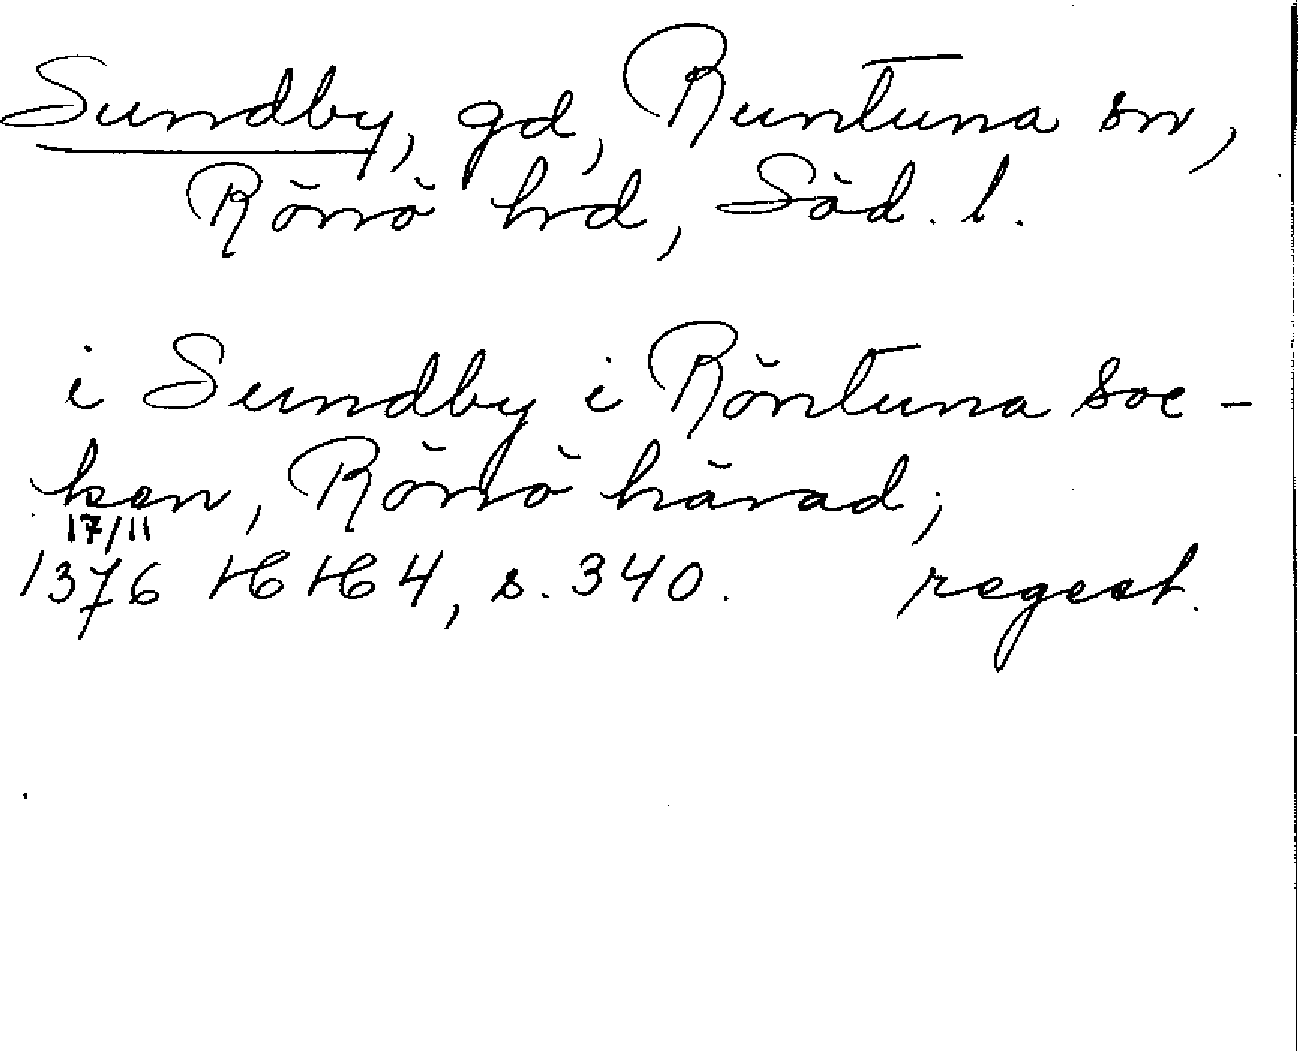 Sundby, gd, Runtuna sn,
Rönö hrd, Söd. l.
i Sundby i Röntuna soc-
ken, Rönö härad;
17/11
1376 HH 4, s. 340. regest.